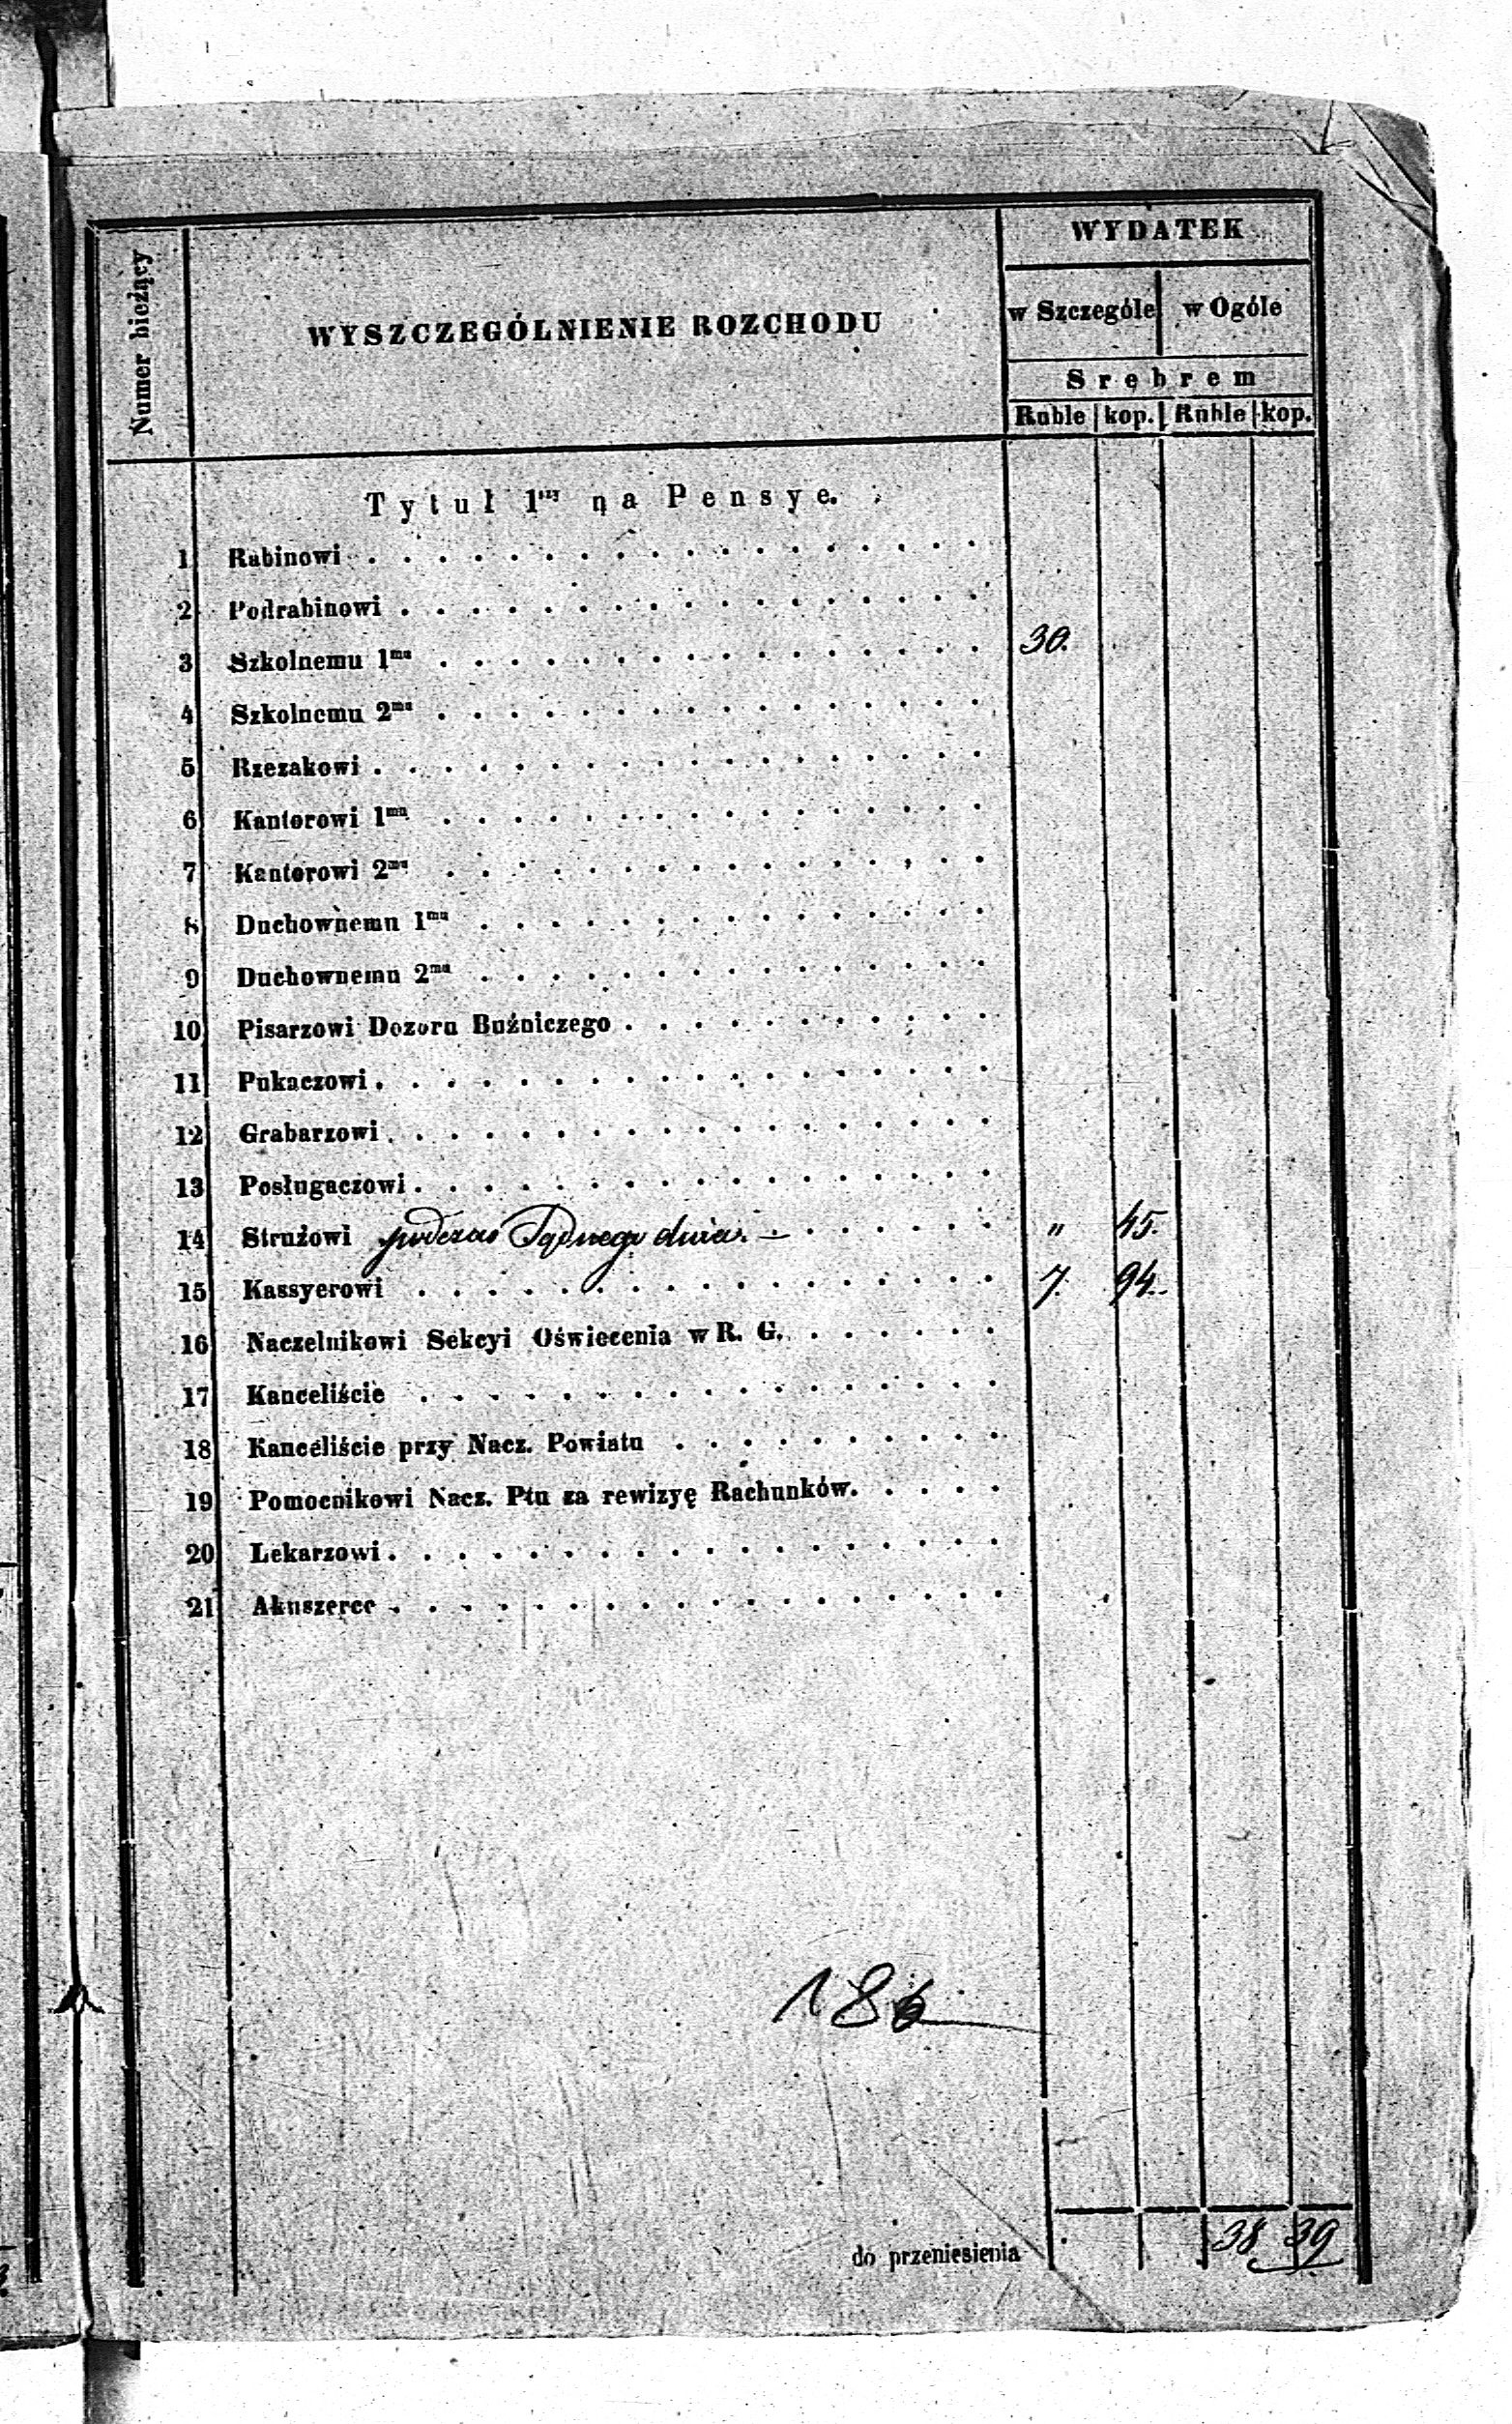 Numer bieżący
WYSZCZEGÓLNIENIE ROZCHODU
WYDATEK
w Szczególe w Ogóle
Srebrem
Ruble kop. Ruble kop.
Tytuł 1ny na Pensye.
1 Rabinowi
2 Podrabinowi
3 Szkolnemu 1mu 30.
4 Szkolnemu 2mu
5 Rzezakowi
6 Kantorowi 1mu
7 Kantorowi 2mu
8 Duchownemu 1mu
9 Duchownemu 2mu
10 Pisarzowi Dozoru Bużniczego
11 Pukaczowi
12 Grabarzowi
13 Posługaczowi
14 Strużowi podczas Sądnego dnia. " 45.
15 Kassyerowi 7. 94.
16 Naczelnikowi Sekcyi Oświecenia w R. G.
17 Kanceliście
18 Kanceliście przy Nacz. Powiatu
19 Pomocnikowi Nacz. Ptu za rewizyę Rachunków.
20 Lekarzowi
21 Akuszerce
186
do przeniesienia 38 39